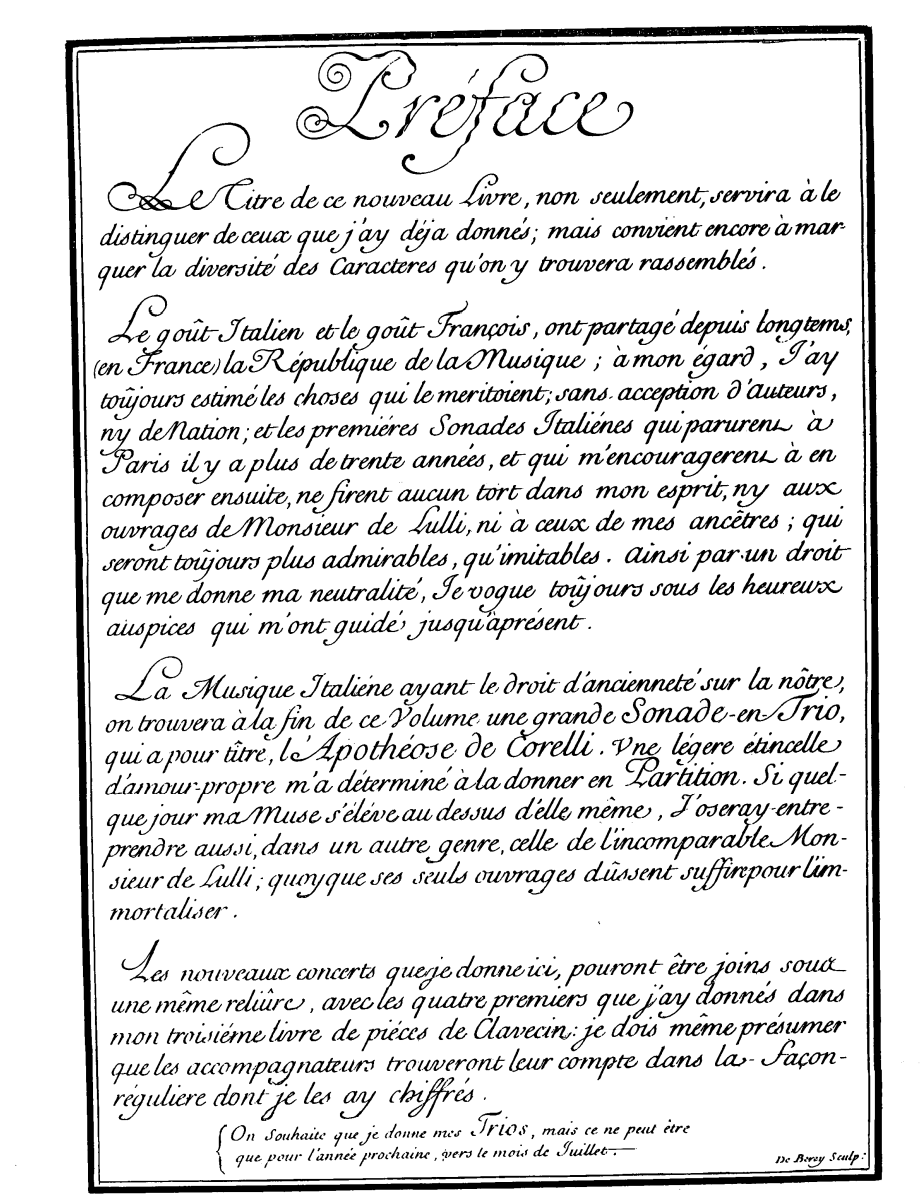 Préface
Le Titre de ce nouveau Livre, non seulement, servira à le
distinguer de ceux que j'ay déja donnés; mais convient encore à mar-
quer la diversité des Caracteres qu'on y trouvera rassemblés.
Le goût Italien et le goût François, ont partagé depuis longtems,
(en France) la République de la Musique; à mon égard, J'ay
toûjours estimé les choses qui le meritoient; sans acception d'auteurs,
ny de Nation; et les premiéres Sonades Italiénes qui parurent à
Paris il y a plus de trente années, et qui m'encouragerent à en
composer ensuite, ne firent aucun tort dans mon esprit, ny aux
ouvrages de Monsieur de Lulli, ni à ceux de mes ancêtres; qui
seront toûjours plus admirables, qu'imitables. Ainsi par un droit
que me donne ma neutralité, Je vogue toûjours sous les heureux
auspices qui m'ont guidé jusqu'àprésent.
La Musique Italiéne ayant le droit d'ancienneté sur la nôtre,
on trouvera à la fin de ce Volume une grande Sonade-en-Trio,
qui a pour tître, l'Apothéose de Corelli. Vne légere étincelle
d'amour-propre m'a déterminé à la donner en Partition. Si quel-
que jour ma Muse s'éléve au dessus d'elle même, J'oseray-entre-
prendre aussi, dans un autre genre, celle de l'incomparable Mon-
sieur de Lulli; quoyque ses seuls ouvrages dûssent suffire pour l'im-
mortaliser.
Les nouveaux concerts que je donne ici, pouront être joins soux
une même reliûre, avec les quatre premiers que j'ay donnés dans
mon troisiéme livre de piéces de Clavecin: je dois même présumer
que les accompagnateurs trouveront leur compte dans la façon-
réguliere dont je les ay chiffrés.
On Souhaite que je donne mes Trios, mais ce ne peut être
que pour l'année prochaine, vers le mois de Juillet.
De Berey Sculp: